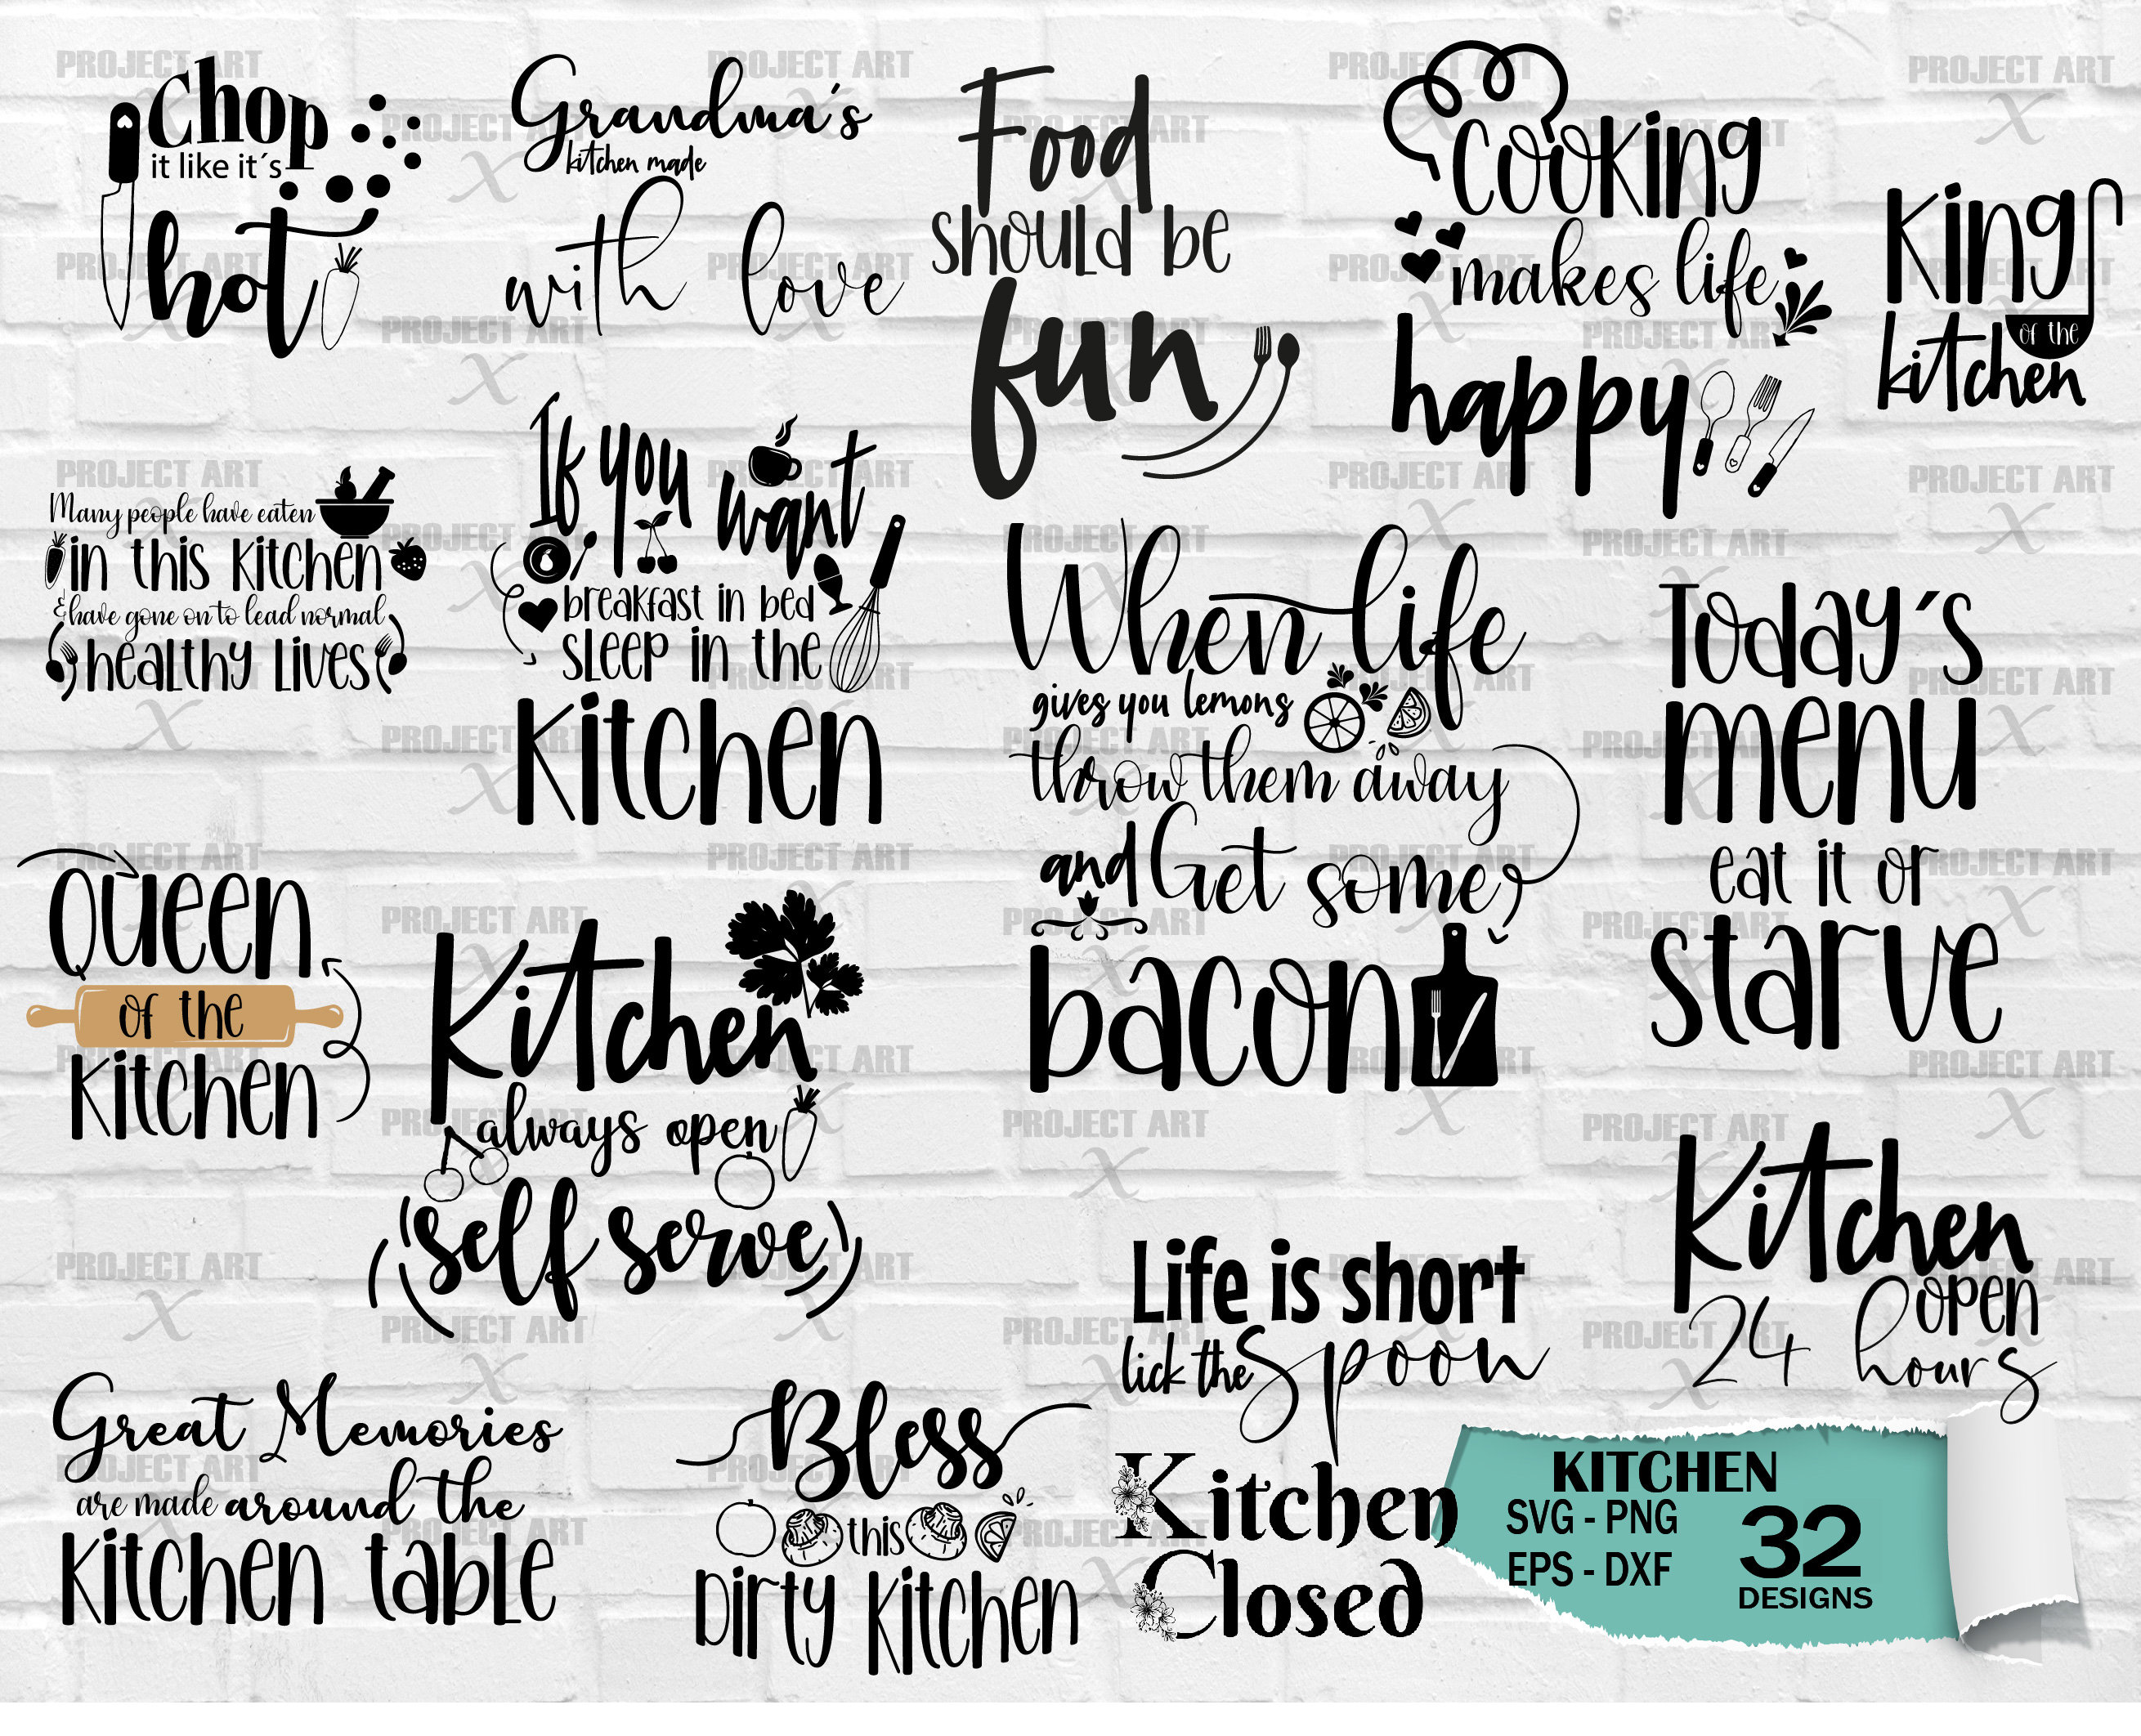 Chop
it like it´s
hot
Grandma´s
kitchen made
with love
Food
should be
fun
Cooking
makes life
happy
King
of the
kitchen
Many people have eaten
in this kitchen
& have gone on to lead normal
healthy lives
If you
want
breakfast in bed
sleep in the
kitchen
When life
gives you lemons
throw them away
and Get some
bacon
Today´s
menu
eat it or
starve
Queen
of the
kitchen
Kitchen
always open
self serve
Kitchen
open
24 hours
Life is short
lick the Spoon
Great Memories
are made around the
kitchen table
Bless
this
Dirty kitchen
Kitchen
Closed
KITCHEN
SVG - PNG
EPS - DXF
32
DESIGNS
PROJECT ART
X